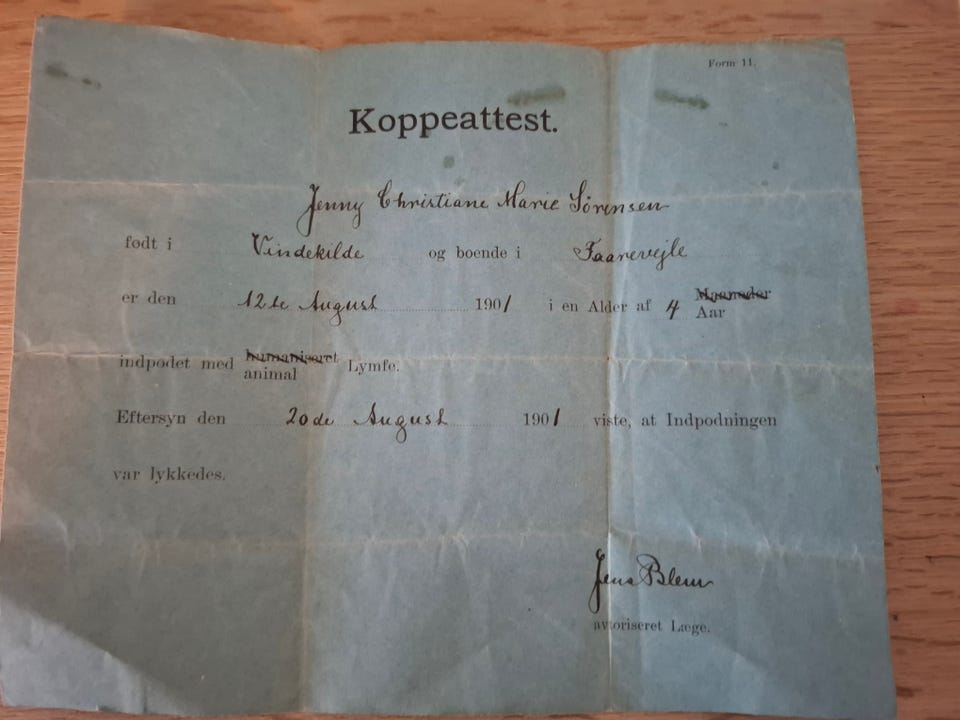 Form 11.
Koppeattest.
Jenny Christiane Marie Sörensen
født i Vindekilde og boende i Faarevejle
er den 12te August 1901 i en Alder af 4 Maaneder
Aar
indpodet med humaniseret Lymfe.
animal
Eftersyn den 20de August 1901 viste, at Indpodningen
var lykkedes.
Jens Blem
avtoriseret Læge.